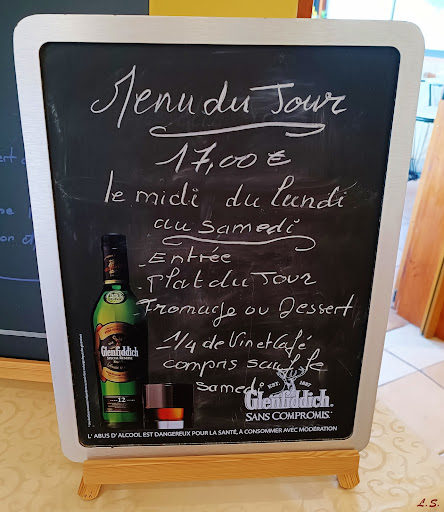 Menu du Jour
17,00 €
le midi du lundi
au samedi
Entrée
Plat du Jour
Fromage ou Dessert
1/4 de Vin et Café
compris sauf le
samedi
Glenfiddich
12
EST. 1887
Glenfiddich.
SANS COMPROMIS.
L'ABUS D'ALCOOL EST DANGEREUX POUR LA SANTÉ, À CONSOMMER AVEC MODÉRATION
L.S.